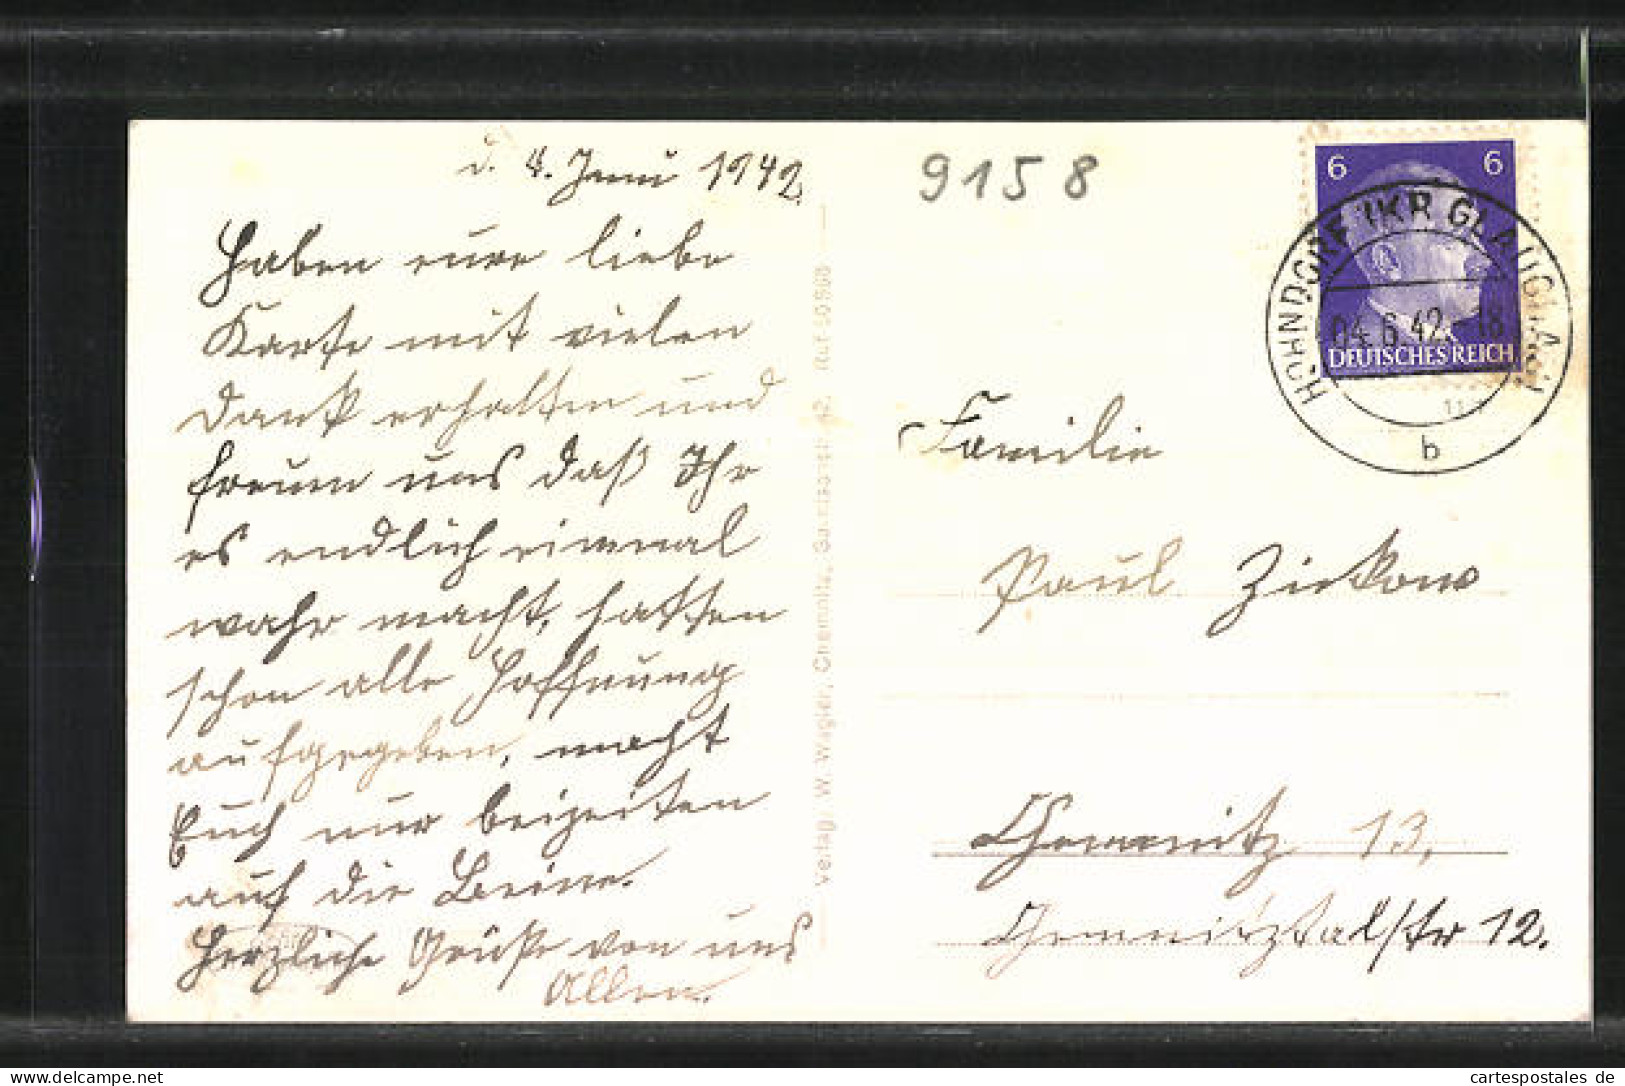 d. 4. Juni 1942.
Haben eure liebe
Karte mit vielen
Dank erhalten und
freuen uns daß Ihr
es endlich einmal
wahr macht, hatten
schon alle Hoffnung
aufgegeben, macht
Euch nur beizeiten
auf die Beine.
Herzliche Grüße von uns
Allen.
Verlag: W. Wagler, Chemnitz,
9158
6 6
DEUTSCHES REICH
HOHNDORF (KR GLAUCHAU)
04.6.42.-18
b
Familie
Paul Zirkow
Chemnitz 13,
Chemnitztalstr 12.
cartespostales de